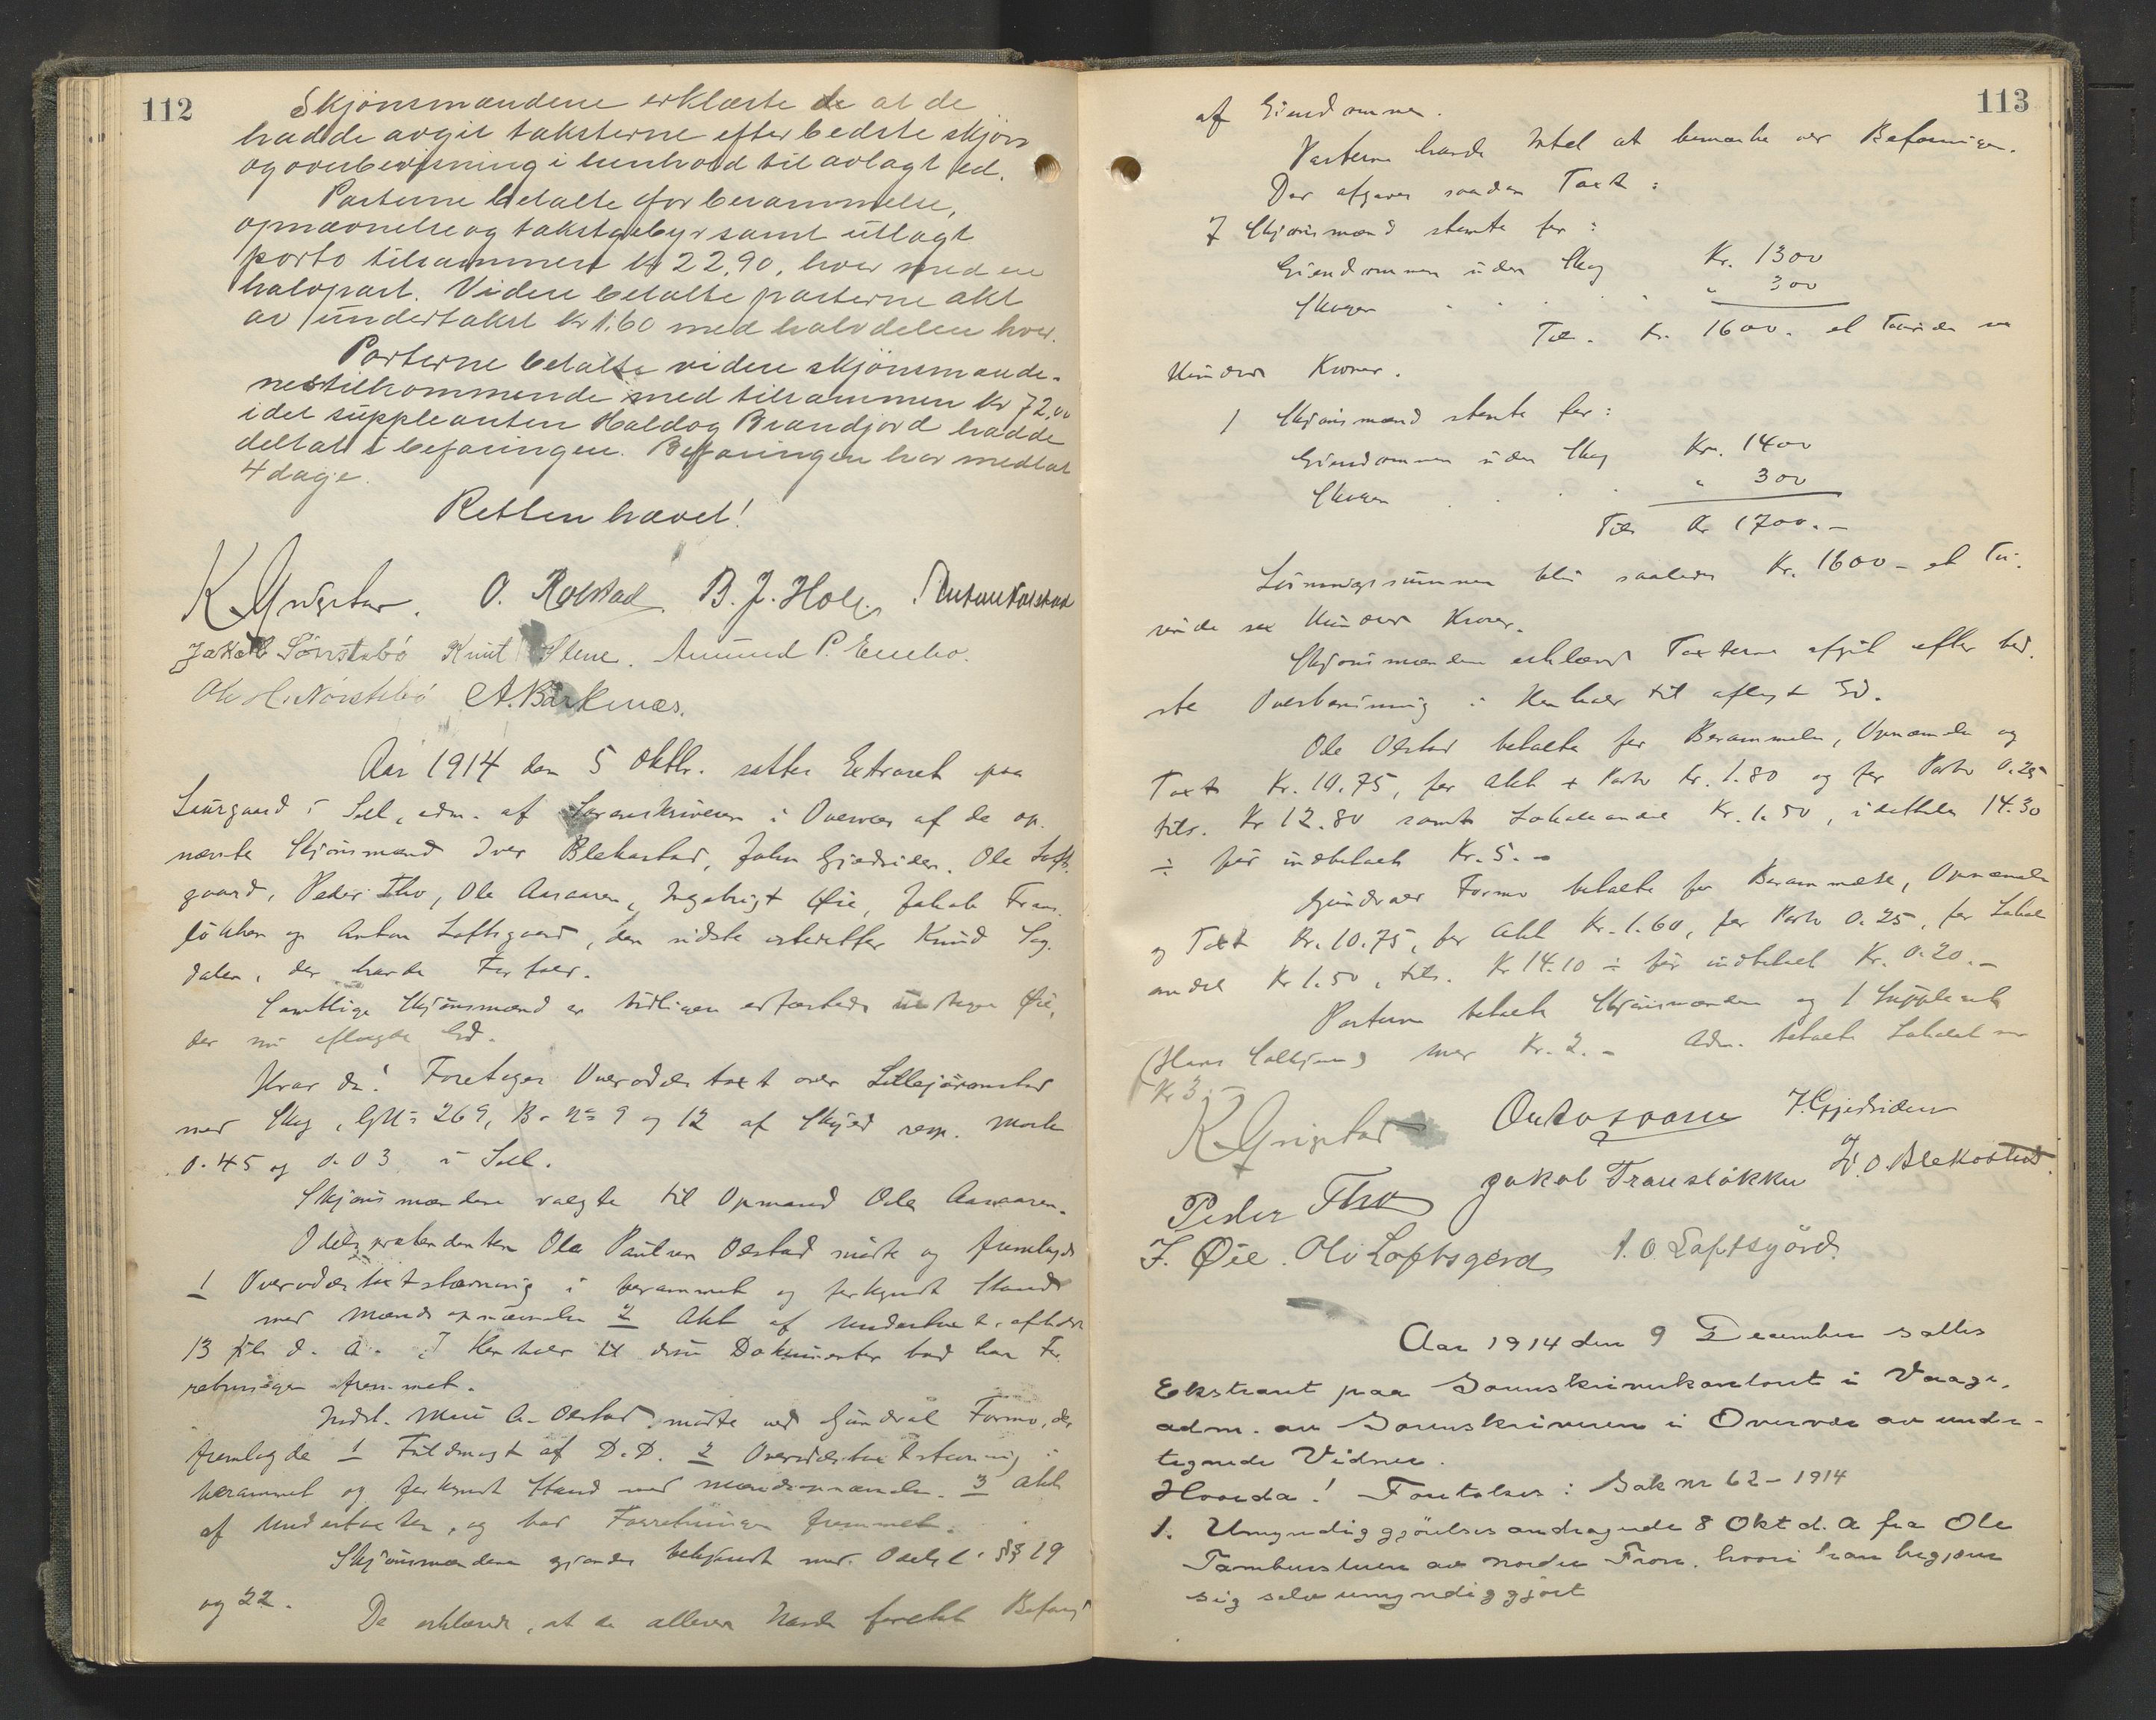 112
Skjönsmændene erklærte de at de
hadde avgit taksterne efter bedste skjön
og overbevisning i henhold til avlagt ed.
Parterne betalte for berammelse,
opnævnelse og takstgebyr samt utlagt
porto tilsammen kr 22,90, hver med en
halvpart. Videre betalte parterne akt
av undertakst kr 1.60 med halvdelen hver.
Parterne betalte videre skjönsmænde-
nes tilkommende med tilsammen kr 72,00
idet suppleanten Haldog Brandjord hadde
deltat i befaringen. Befaringen har medtat
4 dage.
Retten hævet!
K Ynistad. O. Rolstad B. J. Hole. Anton Kolstad
Jakob Sönstebö Knut Stene. Amund P. Embo.
Ole H. Nörstebö A. Barknæs.
Aar 1914 den 5 Oktbr. sattes Extraret paa
Laurgaard i Sell, adm. af Sorenskriveren i Overvær af de op-
nævnte Skjönsmænd Iver Blekastad, John Gjedsiden, Ole Lofts-
gaard, Peder Tho, Ole Aasaaren, Ingebrigt Øie, Jakob Frans-
lökken og Anton Loftsgaard, den sidste istedetfor Knud Sag-
dalen, der havde Forfald.
Samtlige Skjönsmænd er tidligere edfæstede undtagen Øie,
der nu aflagde Ed.
Hvorda! Foretages Overodelstaxt over Lillejöronstad
med Skog, G. N= 269, B. N= 9 og 12 af Skyld resp. Mark
0.45 og 0.03 i Sell.
Skjönsmændene valgte til Opmand Ole Aasaaren.
Odelsprætendenten Ole Paulsen Olstad mödte og fremlagde
1 Overodelstaxtstævning i berammet og forkyndt Stand
med Mændsopnævnelse 2 Akt af Undertaxt, afholdt
13 Juli d. A. I Henhold til disse Dokumenter bad han For-
retningen fremmet.
Indst. Mari A. Olstad mödte ved Gundval Formo, der
fremlagde 1 Fuldmagt af D.D. 2 Overodelstaxtstævning i
berammet og forkyndt Stand med Mændsopnævnelse. 3 Akt
af Undertaxten, og bad Forretningen fremmet.
Skjönsmændene gjordes bekjendt med Odelsl. §§ 19
og 22.
De erklærede, at de allerede havde foretat Befaring
113
af Eiendommen.
Parterne havde Intet at bemærke ved Befaringen.
Der afgaves saadan Taxt:
7 Skjönsmænd stemte for:
Eiendommen uden Skog Kr. 1300
Skogen . . . . " 300
Til. Kr. 1600. et Tusinde sex
Hundrede Kroner.
1 Skjönsmænd stemte for:
Eiendommen uden Skog Kr. 1400
Skogen . . . " 300
Tils Kr 1700.-
Lösningssummen blir saaledes Kr. 1600 - et Tu-
sinde sex Hundrede Kroner.
Skjönsmændene erklærede Taxterne afgit efter bed-
ste Overbevisning i Henhold til aflagt Ed.
Ole Olstad betalte for Berammelse, Opnævnelse og
Taxt Kr. 10.75, for Akt + Porto Kr. 1.80 og for Porto 0.25
tils. Kr 12.80 samt Lokaleandel Kr. 1.50, ialt 14.30
÷ för indbetalt Kr. 5.-
Gundval Formo betalte for Berammelse, Opnævnelse
og Taxt Kr. 10.75, for Akt Kr. 1.60, for Porto 0.25, for Lokale
andel Kr 1.50, tils. Kr 14.10 ÷ för indbetalt Kr. 0.20.-
Parterne betalte Skjönsmændene og 1 Suppleant
(Hans Solhjem) hver Kr. 2.- Adm. betalte Lokalet med
Kr 3.-
K Ynistad Ole Aasaaren J. Gjedsiden
Peder Tho Jakob Franslökken I. O. Blekastad.
I. Øie. Ole Loftsgård A. O. Loftsgård
Aar 1914 den 9 December sattes
Ekstraret paa Sorenskriverkontoret i Vaage,
adm. av Sorenskriveren i Overvær av under-
tegnede Vidner.
Hvorda! Foretoges: Sak nr 62 - 1914
1. Umyndiggjörelsesandragende 8 Okt d. A fra Ole
Tamburstuen av nordre Fron. hvori han begjærer
sig selv umyndiggjort